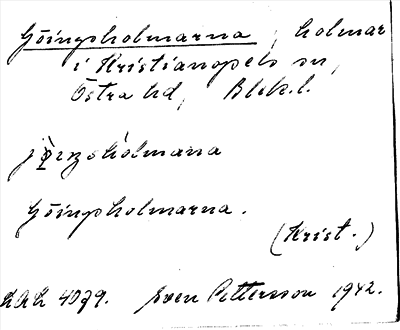 Göingsholmarna, holmar
i Kristianopels sn,
Östra hd, Blek.l.
Göingsholmarna.
(Krist.)
4079. Sven Pettersson 1942.